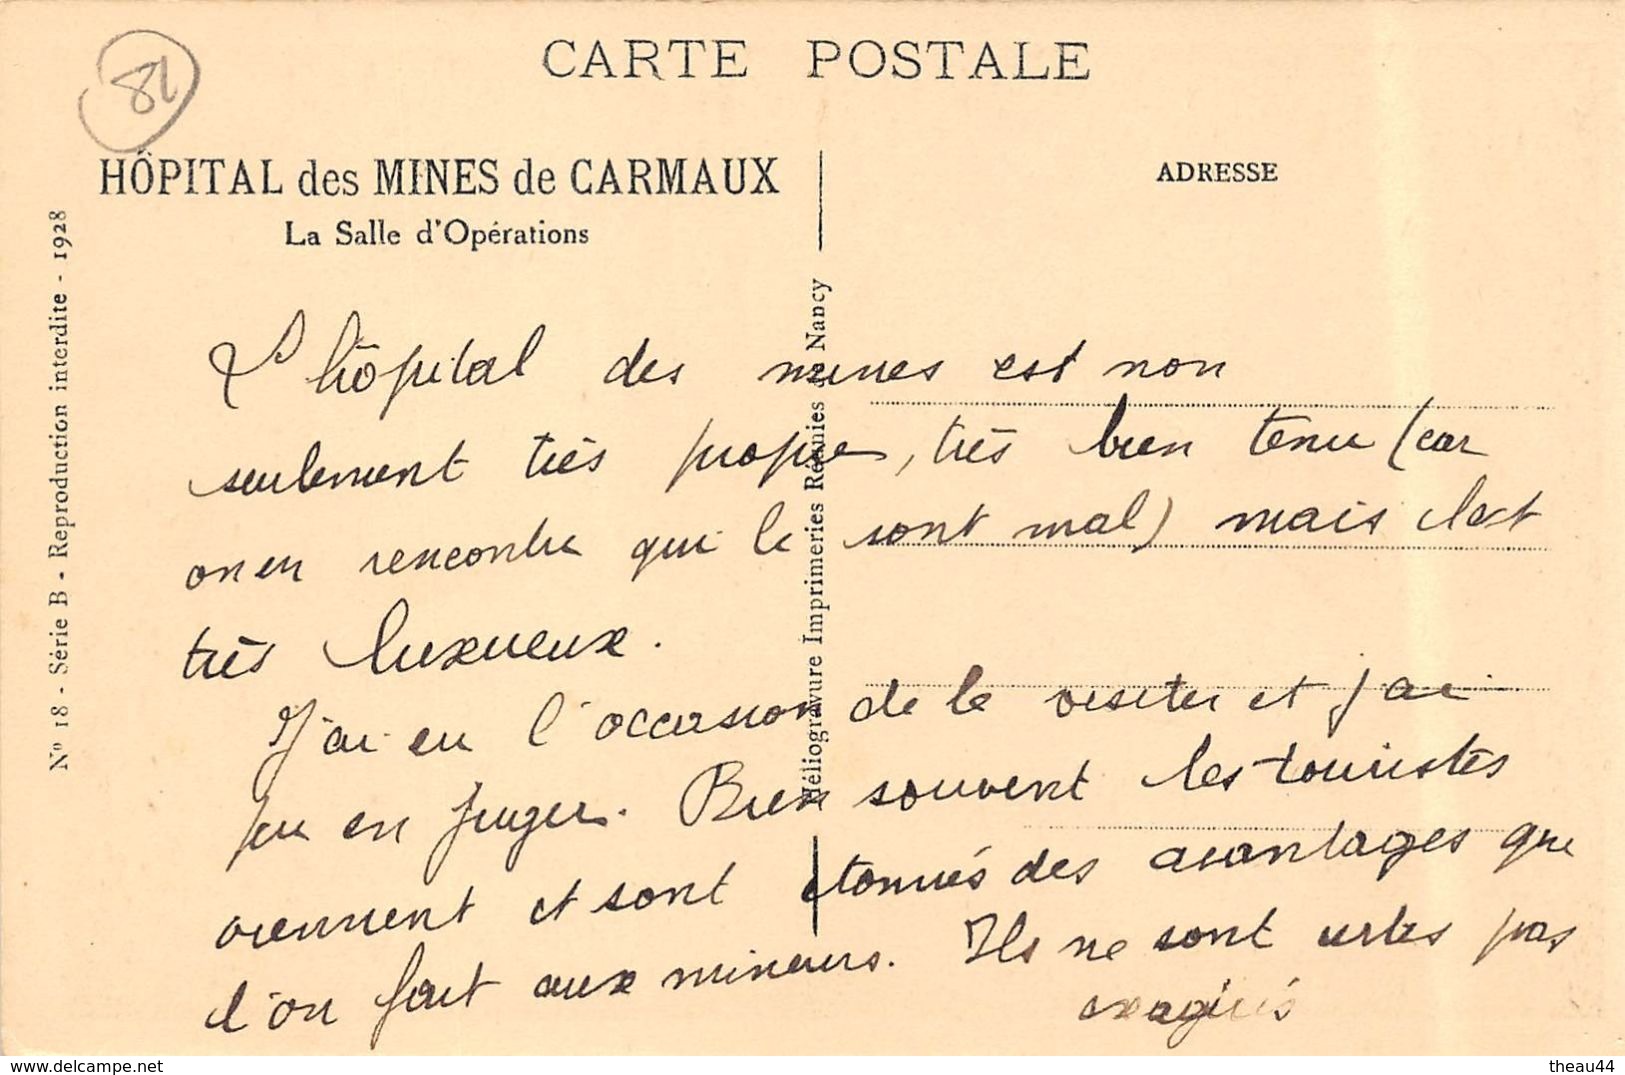 81
CARTE POSTALE
HÔPITAL des MINES de CARMAUX
La Salle d'Opérations
ADRESSE
Nº 18 - Série B - Reproduction interdite - 1928
Héliogravure Imprimeries Réunies Nancy
L'hôpital des mines est non
seulement très propre, très bien tenu (car
on en rencontre qui le sont mal) mais c'est
très luxueux.
J'ai eu l'occasion de le visiter et j'ai
pu en juger. Bien souvent les touristes
viennent et sont étonnés des avantages que
l'on fait aux mineurs. Ils ne sont certes pas
exagérés
delcampe.net
theau44